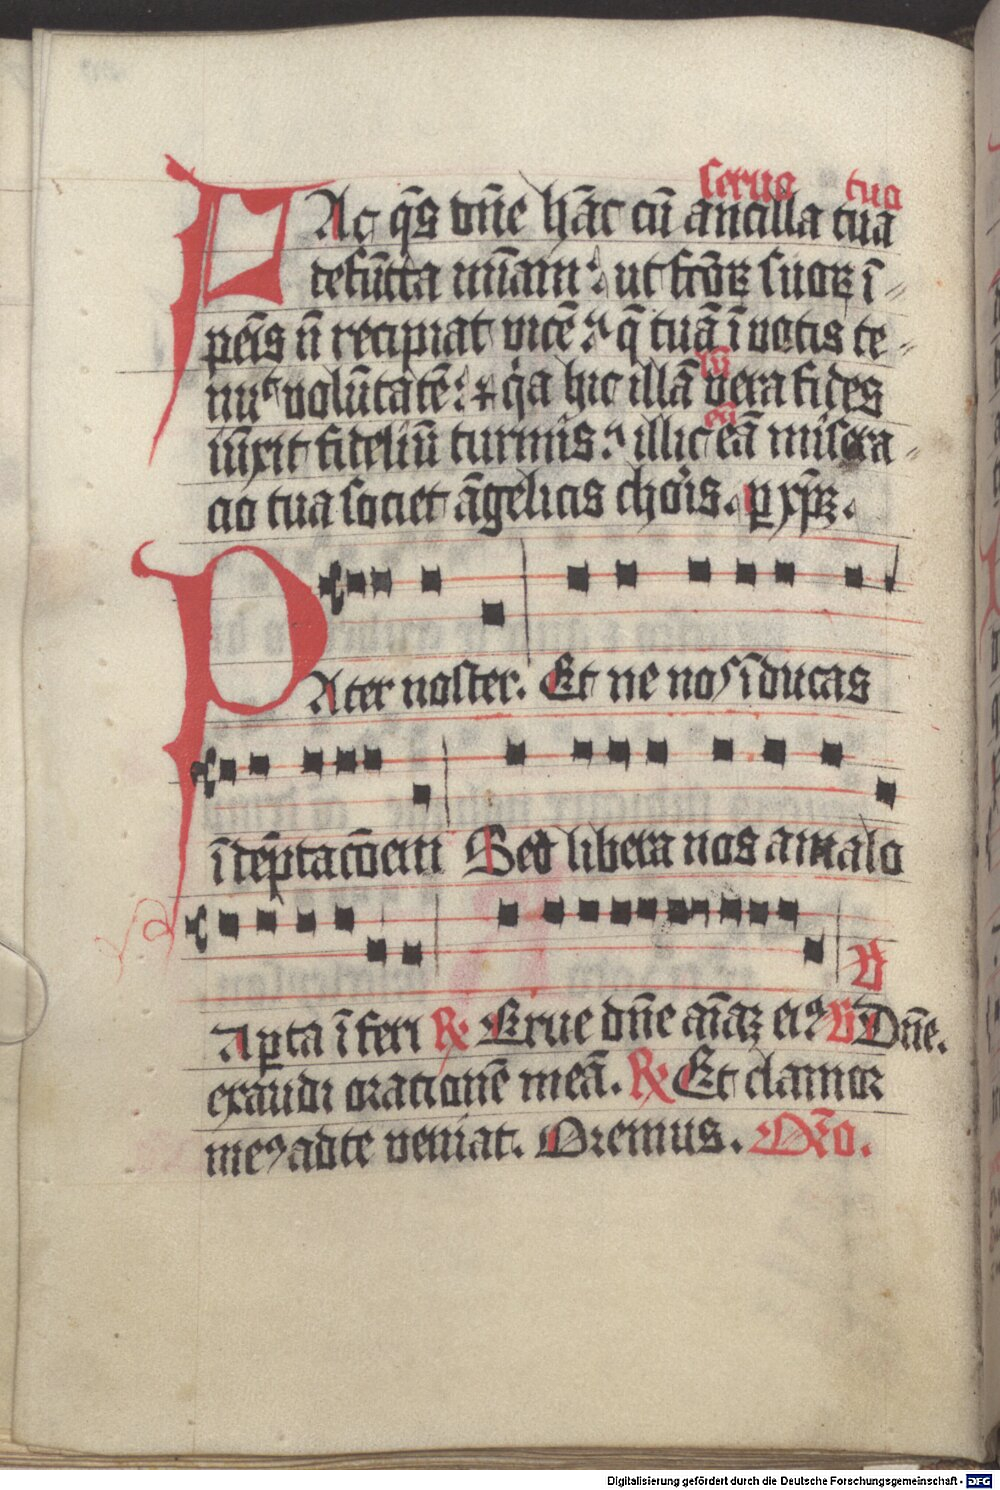 seruo tuo
FAc q̄s dn̄e hāc cū ancilla tua
defūcta mīam: ut fc̄oꝝ suoꝝ ī-
pēis n̄ recipiat vicē: q̄ tuā ī votis te-
lū
nuꝰ volūtatē: ⁊ q̇a hic illā vera fides
eū
iūxit fideliū turmis: illic eā misera-
cio tua societ āgelicis chōis. ꝑ xp̄ꝫ.
PAter noster. Et ne nos īducas
ī tēptac̄oem Sed libera nos a malo
V
A ꝑta īferi ℟ Erue dn̄e aīaꝫ eiꝰ V Dn̄e.
exaudi orationē meā. ℟ Et clamor
meꝰ ad te veniat. Oremus. Or̄o.
Digitalisierung gefördert durch die Deutsche Forschungsgemeinschaft - DFG